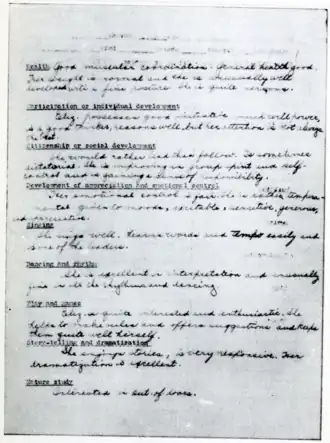 Health Good muscular coordination. General health good.
Her weight is normal and she is unusually well
developed with a fine posture. She is quite nervous.
Participation or individual development
Eliz. possesses good initiative much will power,
is a good thinker, reasons well, but her attention is not always
the best.
Citizenship or social development
She would rather lead than follow. Is sometimes
dictatorial. She is growing in group spirit and self
control and is gaining a sense of responsibility.
Development of appreciation and emotional control
Her emotional control is fair. She is rather tempera-
mental, given to moods, excitable, sensitive, generous,
and appreciative.
Singing
She sings well. Learns words and tempo easily and
is one of the leaders.
Dancing and rhythm
She is excellent in interpretation and unusually
fine in all the rhythms and dancing.
Play and games
Eliz. is quite interested and enthusiastic. She
helps to make rules and offers suggestions and keeps
them quite well herself.
Story-telling and dramatization
She enjoys stories, is very responsive. Her
dramatization is excellent.
Nature study
Interested in out of doors.